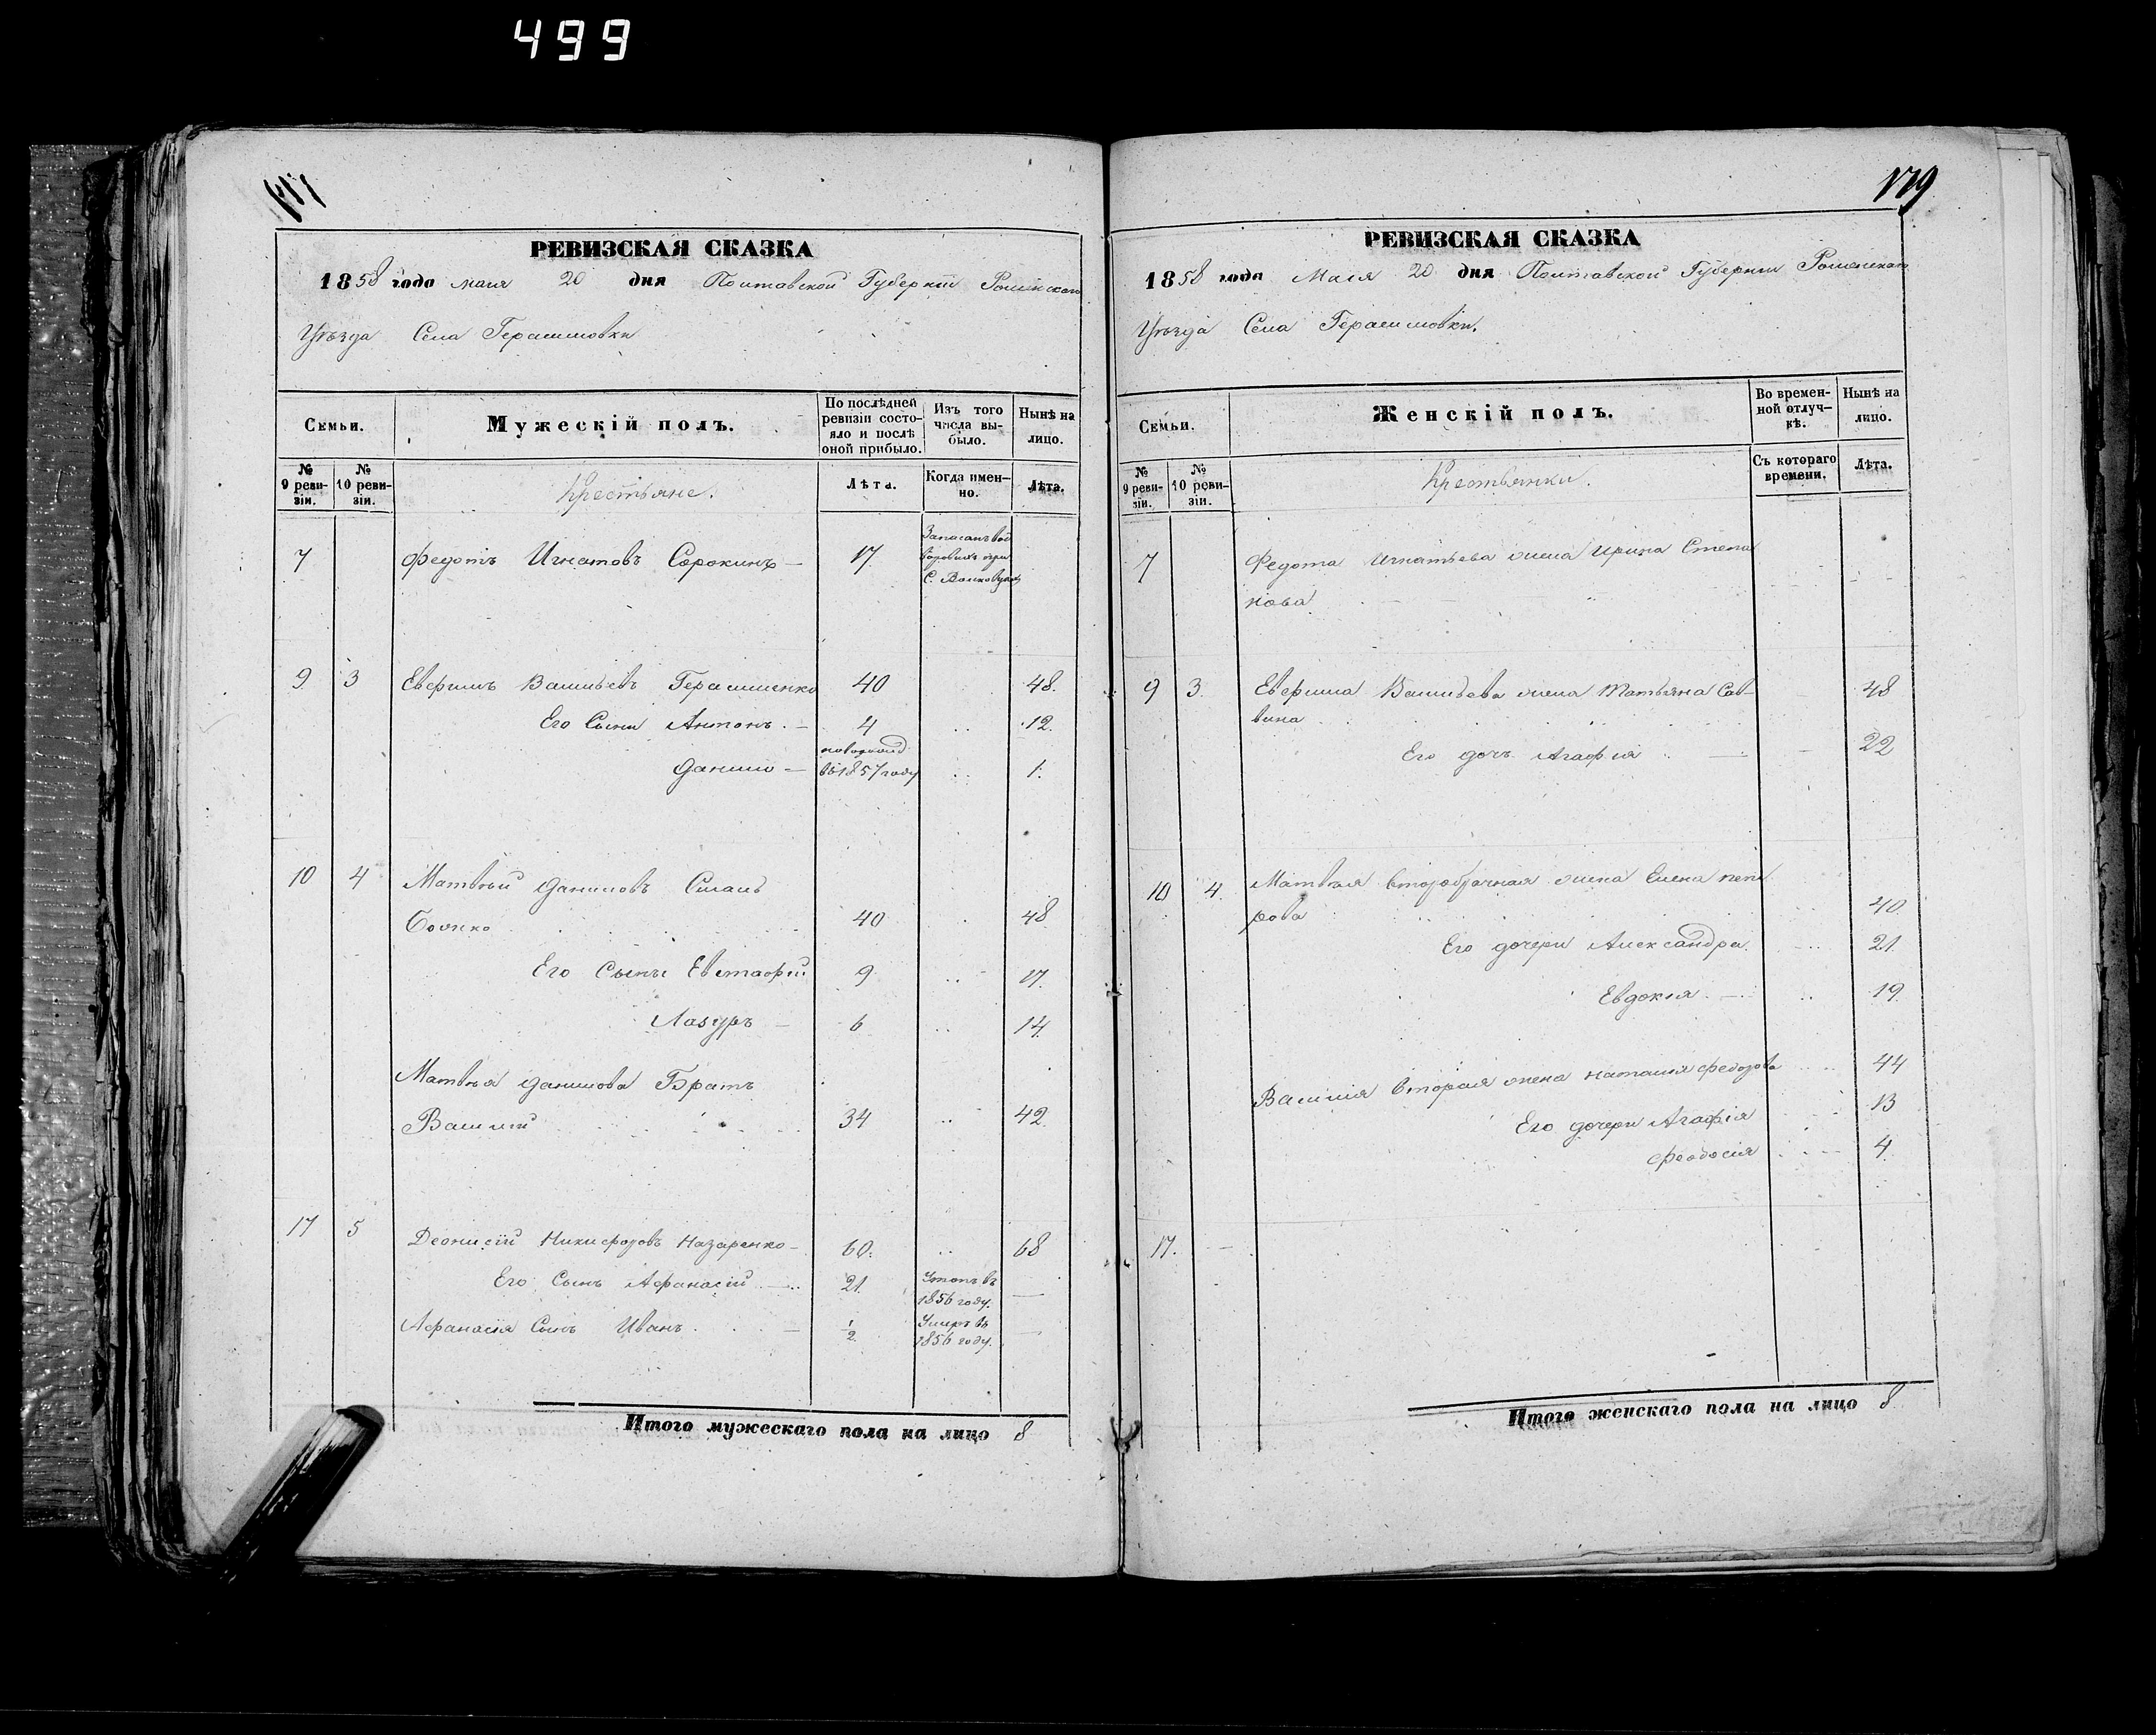 499
РЕВИЗСКАЯ СКАЗКА
1858 года мая 20 дня Полтавской Губерніи Роменскаго
Уѣзда Села Герасимовки
Семьи.
Мужескій полъ.
По послѣдней ревизіи состояло и послѣ оной прибыло.
Изъ того числа выбыло.
Нынѣ на лицо.
№ 9 ревизіи.
№ 10 ревизіи.
Крестьяне.
Лѣта.
Когда именно.
Лѣта.
7 Федотъ Игнатовъ Сорокинъ — 17 Записанъ
С.
9 3 Евфимъ Васильевъ Герасименко 40 48.
Его Сыны Антонъ. — 4 12.
новорожд
Данило — въ 1857 году 1.
10 4 Матвѣй Даниловъ Слаль
Божко 40 48
Его Сыны Евстафій 9 17.
Лазуръ — 6 14.
Матвѣя Данилова Братъ
Василій 34 42
17 5 Деонисій Никифоровъ Назаренко — 60. 68
Его Сынъ Афанасій 21. Утопъ въ 1856 году. —
Афанасія Сынъ Иванъ. — 1/2 Умеръ въ 1856 году. —
Итого мужескаго пола на лицо 8
179
РЕВИЗСКАЯ СКАЗКА
1858 года Мая 20 дня Полтавской Губерніи Роменскаго
Уѣзда Села Герасимовки.
Семьи.
Женскій полъ.
Во временной отлучкѣ.
Нынѣ на лицо.
№ 9 ревизіи.
№ 10 ревизіи.
Крестьянки.
Съ котораго времени.
Лѣта.
7 Федота Игнатьева жена Ирина Степа
нова
9 3. Евфима Васильева жена Татьяна Сав— 48
вина
Его дочь Агафія 22
10 4. Матвѣя второбрачная жена Елена пет
рова 40.
Его дочери Александра. 21.
Евдокія. — 19.
Василія вторая жена наталия федорова 44
Его дочери Агафія 13
феодосія 4.
17. —
Итого женскаго пола на лицо 8